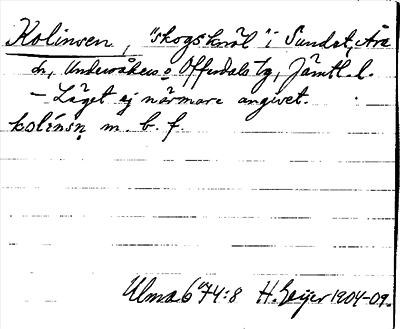 Kolinsen, "skogsknöl" i Sundet, Åre
sn, Undersåkers o Offerdals tg, Jämtl. l.
– Läget ej närmare angivet.
kolínsn̥ m. b. f.
Ulma 6 74:8 H. Geijer 1904-09.